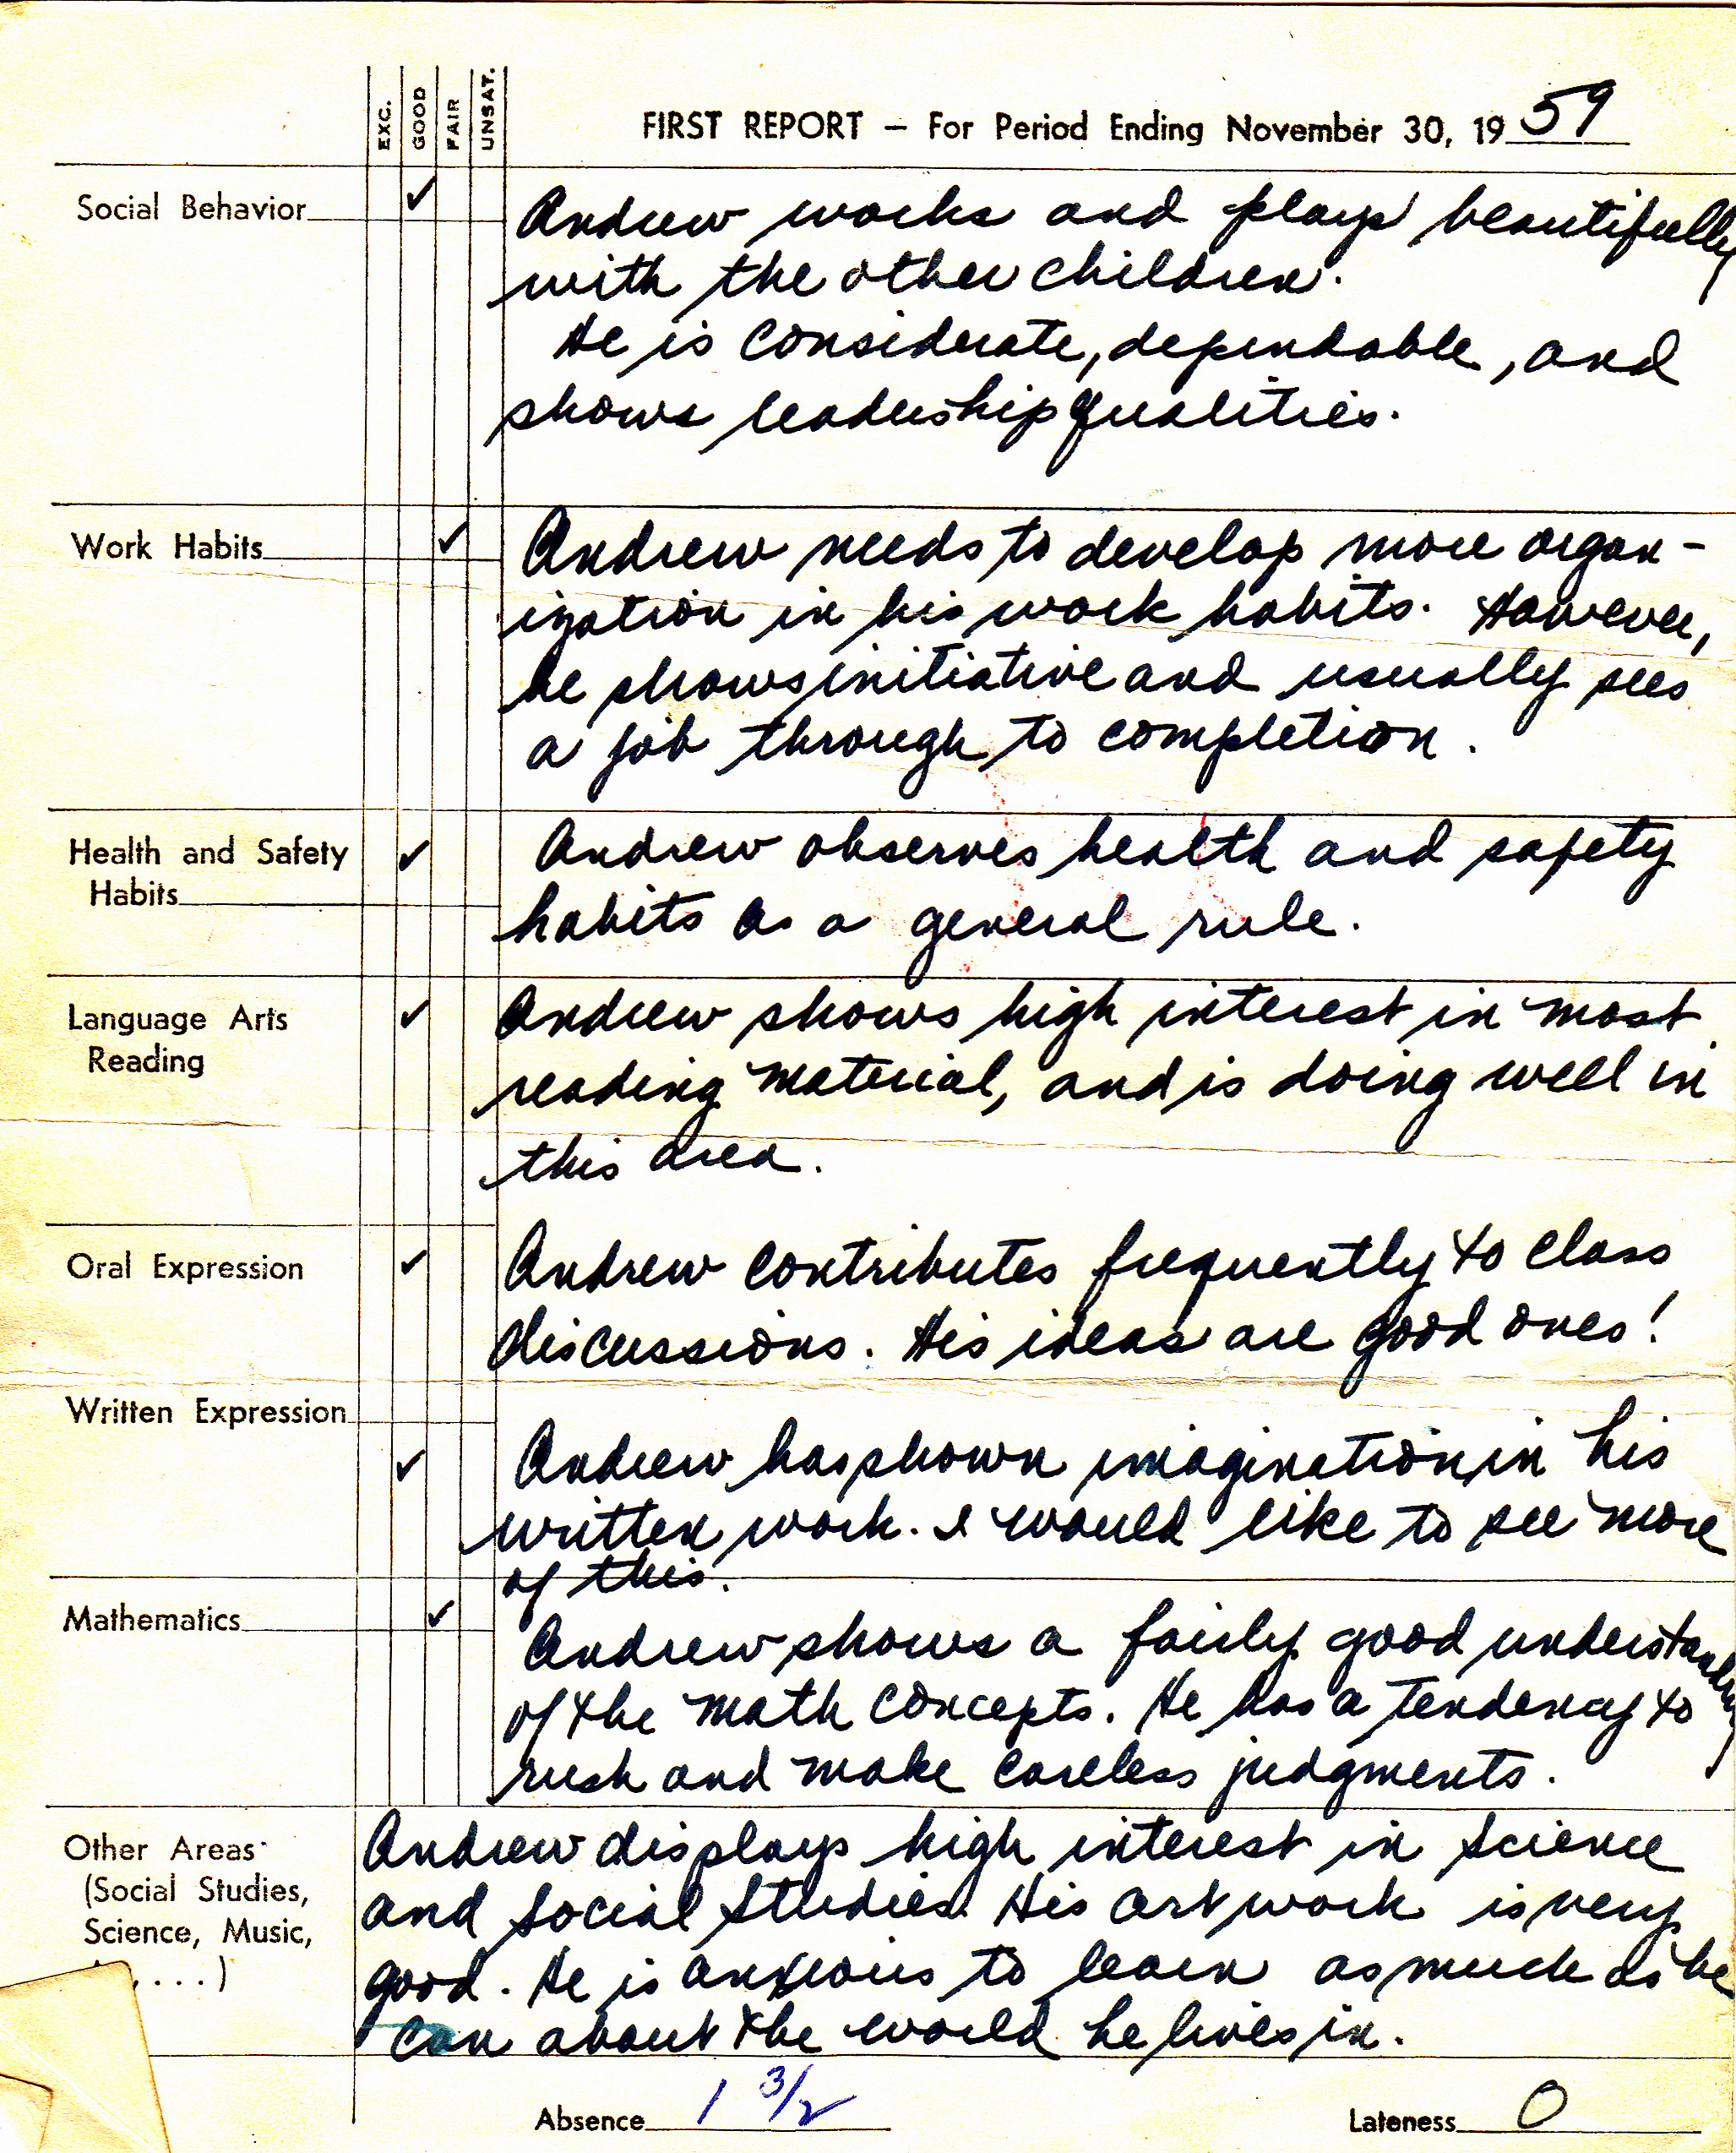 EXC. GOOD FAIR UNSAT.
FIRST REPORT – For Period Ending November 30, 19 59
Social Behavior
Andrew works and plays beautifully
with the other children.
He is considerate, dependable, and
shows leadership qualities.
Work Habits
Andrew needs to develop more organ-
ization in his work habits. However,
he shows initiative and usually sees
a job through to completion.
Health and Safety
Habits
Andrew observes health and safety
habits as a general rule.
Language Arts
Reading
Andrew shows high interest in most
reading material, and is doing well in
this area.
Oral Expression
Andrew contributes frequently to class
discussions. His ideas are good ones!
Written Expression
Andrew has shown imagination in his
written work. I would like to see more
of this.
Mathematics
Andrew shows a fairly good understanding
of the math concepts. He has a tendency to
rush and make careless judgments.
Other Areas
(Social Studies,
Science, Music,
, . . . )
Andrew displays high interest in Science
and Social Studies. His art work is very
good. He is anxious to learn as much as he
can about the world he lives in.
Absence 1 3/2
Lateness 0